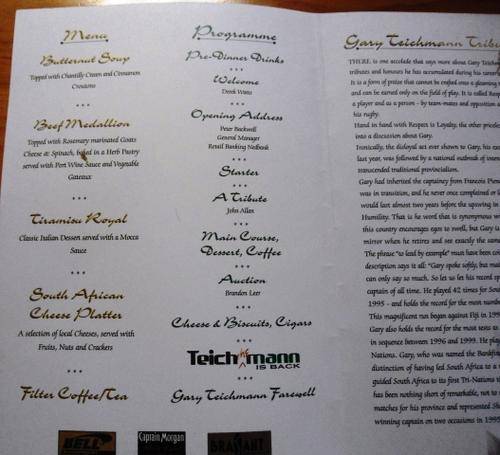 Menu
Butternut Soup
Topped with Chantilly Cream and Cinnamon
Croutons
***
Beef Medallion
Topped with Rosemary marinated Goats
Cheese & Spinach, baked in a Herb Pastry
served with Port Wine Sauce and Vegetable
Gateaux
***
Tiramisu Royal
Classic Italian Dessert served with a Mocca
Sauce
***
South African
Cheese Platter
A selection of local Cheeses, served with
Fruits, Nuts and Crackers
***
Filter Coffee/Tea
BELL
Captain Morgan
Programme
Pre-Dinner Drinks
***
Welcome
Derek Watts
***
Opening Address
Peter Backwell
General Manager
Retail Banking Nedbank
***
Starter
***
A Tribute
John Allen
***
Main Course,
Dessert, Coffee
***
Auction
Brandon Leer
***
Cheese & Biscuits, Cigars
***
Teichmann
IS BACK
***
Gary Teichmann Farewell
Gary Teichmann Tribu
THERE is one accolade that says more about Gary Teich
tributes and honours he has accumulated during his
It is a form of praise that cannot be crafted onto a gleaming
and can be earned only on the field of play. It is called Resp
a player and as a person - by team-mates and opposition
his rugby.
Hand in hand with Respect is Loyalty, the other
into a discussion about Gary.
Ironically, the disloyal act ever shown to Gary, his
last year, was followed by a national outbreak of
transcended traditional provincialism.
Gary had inherited the captaincy from Francois Pien
was in transition, and he never once complained
would last almost two years before the upswing in
Humility. That is he word that is synonymous
this country encourages egos to swell, but Gary is
mirror when he retires and see exactly the same
The phrase "to lead by example" must have been
description says it all: "Gary spoke softly, but
can only say so much. So let us let his record
captain of all time. He played 42 times for Sou
1995 - and holds the record for the most number
This magnificent run began against Fiji in 199
Gary also holds the record for the most tests as
in sequence between 1996 and 1999. He play
Nations. Gary, who was named the Bankfin
distinction of having led South Africa to a
guided South Africa to its first Tri-Nations
has been nothing short of remarkable, not to
matches for his province and represented
winning captain on two occasions in 1995